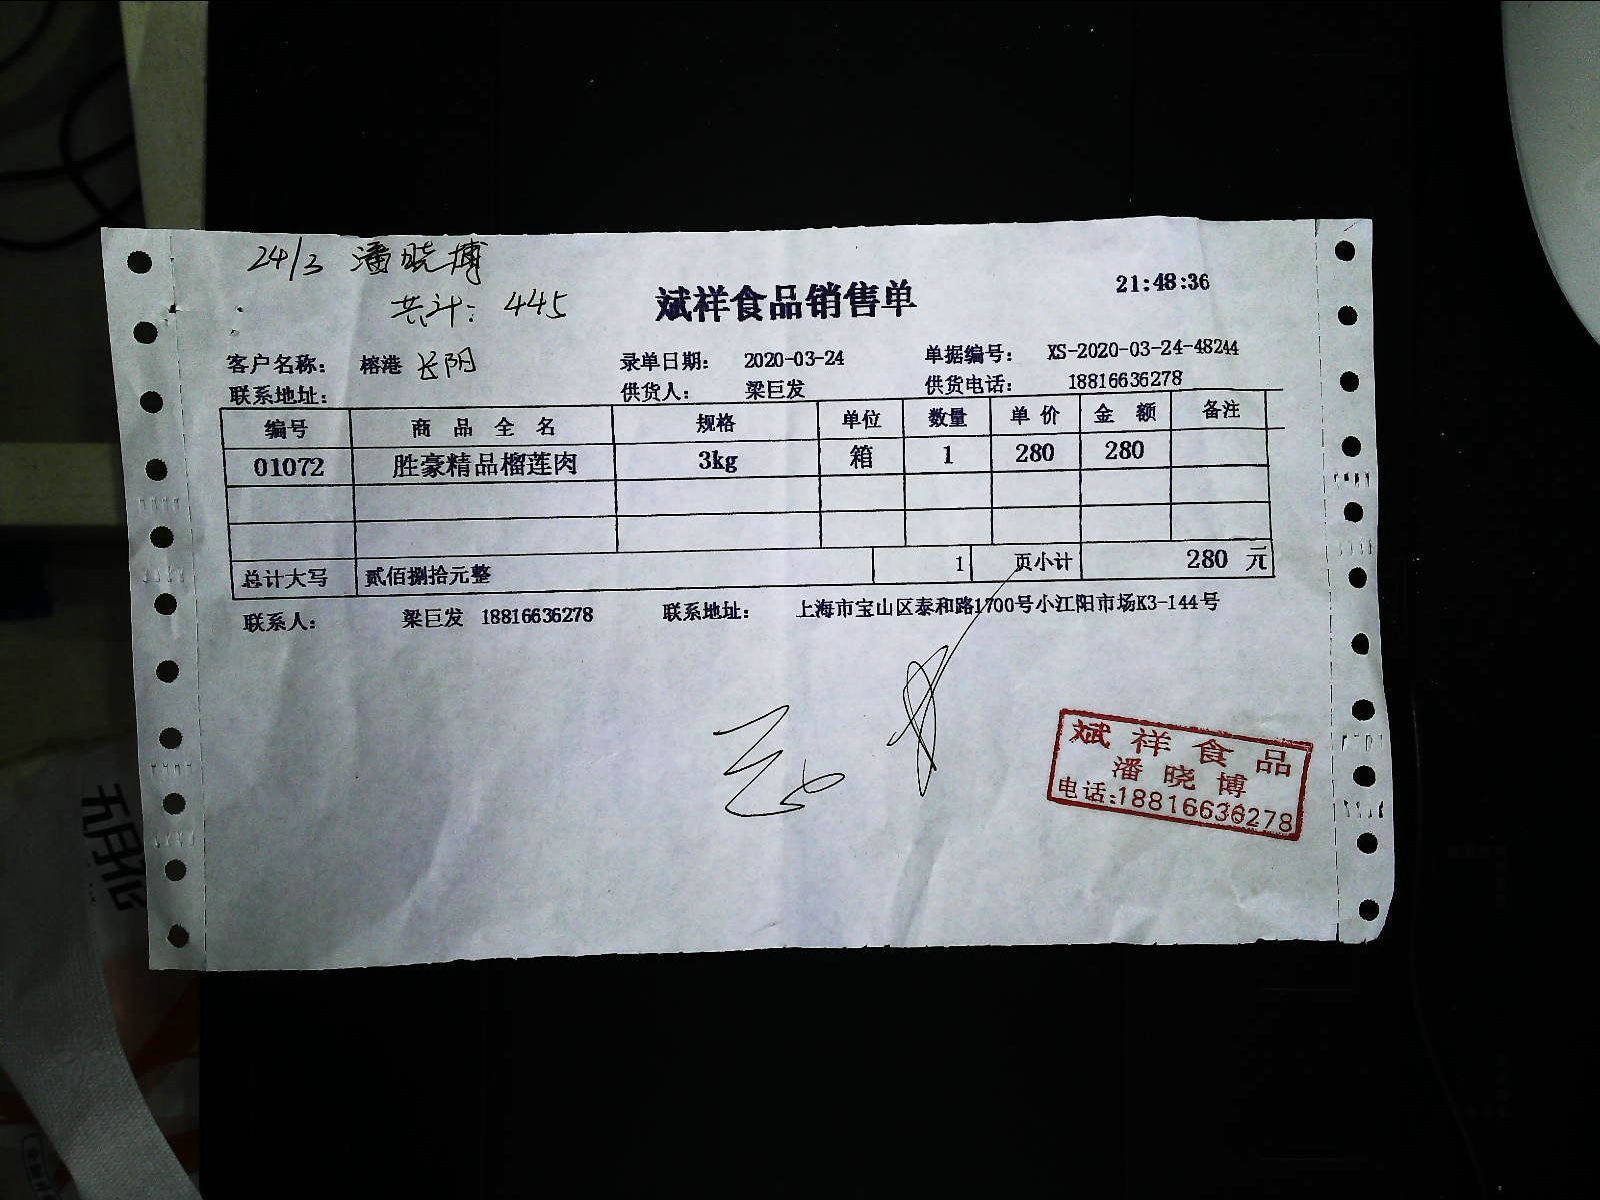 24/3 潘晓博
共计: 445
斌祥食品销售单
21:48:36
客户名称: 榕港 长阳 录单日期: 2020-03-24 单据编号: XS-2020-03-24-48244
联系地址: 供货人: 梁巨发 供货电话: 18816636278
编号 商品全名 规格 单位 数量 单价 金额 备注
01072 胜豪精品榴莲肉 3kg 箱 1 280 280
总计大写 贰佰捌拾元整 1 页小计 280 元
联系人: 梁巨发 18816636278 联系地址: 上海市宝山区泰和路1700号小江阳市场K3-144号
斌祥食品
潘晓博
电话:18816636278